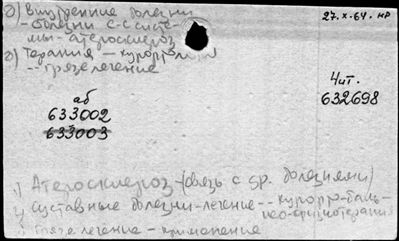 а) Внутренние болезни
27.X.64. нр
- болезни с-с систе-
мы - атеросклероз
б) Терапия - курорт
-- грязелечение
аб
633002
633003
Чит.
632698
1) Атеросклероз - (связь с др. болезнями)
2) суставные болезни - лечение -- курорто-баль-
нео-физиотерапия
3) Грязелечение - применение